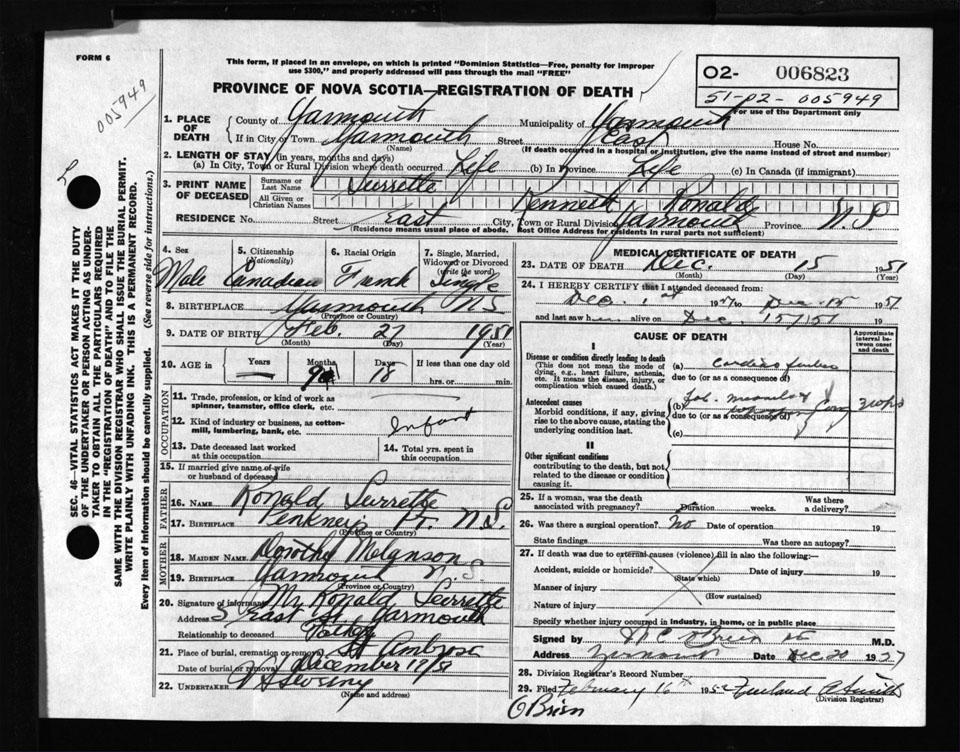 FORM 6
005949
This form, if placed in an envelope, on which is printed "Dominion Statistics—Free, penalty for improper
use $300," and properly addressed will pass through the mail "FREE"
PROVINCE OF NOVA SCOTIA—REGISTRATION OF DEATH
02- 006823
51-02-005949
For use of the Department only
1. PLACE OF DEATH
County of Yarmouth Municipality of Yarmouth
If in City or Town Yarmouth Street East House No.
(Name) (If death occurred in a hospital or institution, give the name instead of street and number)
2. LENGTH OF STAY (in years, months and days)
(a) In City, Town or Rural Division where death occurred Life (b) In Province Life (c) In Canada (if immigrant)
3. PRINT NAME OF DECEASED
Surname or Last Name Surrette
All Given or Christian Names Kenneth Ronald
RESIDENCE No. Street East City, Town or Rural Division Yarmouth Province N.S.
(Residence means usual place of abode. Post Office Address for residents in rural parts not sufficient)
4. Sex Male
5. Citizenship (Nationality) Canadian
6. Racial Origin French
7. Single, Married, Widowed or Divorced (write the word) Single
8. BIRTHPLACE Yarmouth N S
(Province or Country)
9. DATE OF BIRTH Feb. 27 1951
(Month) (Day) (Year)
10. AGE in Years — Months 9 Days 18 If less than one day old
hrs. or min.
OCCUPATION
11. Trade, profession or kind of work as
spinner, teamster, office clerk, etc.
12. Kind of industry or business, as cotton-
mill, lumbering, bank, etc. Infant
13. Date deceased last worked
at this occupation
14. Total yrs. spent in
this occupation
15. If married give name of wife
or husband of deceased
FATHER
16. Name Ronald Surrette
17. Birthplace Pinkney's Pt. N.S.
(Province or Country)
MOTHER
18. MAIDEN NAME Dorothy Melanson
19. BIRTHPLACE Yarmouth N S
(Province or Country)
20. Signature of informant Mr Ronald Surrette
Address East St. Yarmouth
Relationship to deceased Father
21. Place of burial, cremation or removal St Ambrose
Date of burial or removal December 17/51
22. UNDERTAKER
(Name and address)
MEDICAL CERTIFICATE OF DEATH
23. DATE OF DEATH Dec. 15 1951
(Month) (Day)
24. I HEREBY CERTIFY that I attended deceased from
Dec. 1st to Dec. 15 1951
and last saw h alive on Dec. 15/51 19
CAUSE OF DEATH
Approximate interval between onset and death
I
Disease or condition directly leading to death
(This does not mean the mode of
dying, e.g., heart failure, asthenia,
etc. It means the disease, injury, or
complication which caused death.)
(a) Cardiac failure
due to (or as a consequence of)
Antecedent causes
Morbid conditions, if any, giving
rise to the above cause, stating the
underlying condition last.
(b)
due to (or as a consequence of)
(c)
II
Other significant conditions
contributing to the death, but not
related to the disease or condition
causing it.
25. If a woman, was the death
associated with pregnancy? Duration weeks. Was there a delivery?
26. Was there a surgical operation? No Date of operation 19
State findings Was there an autopsy?
27. If death was due to external causes (violence) fill in also the following:—
Accident, suicide or homicide? Date of injury 19
(State which)
Manner of injury
(How sustained)
Nature of injury
Specify whether injury occurred in industry, in home, or in public place
Signed by M.D.
Address Yarmouth Date Dec. 20 19
28. Division Registrar's Record Number
29. Filed February 16th 1952
(Division Registrar)
O'Brien
SEC. 46—VITAL STATISTICS ACT MAKES IT THE DUTY
OF THE UNDERTAKER OR PERSON ACTING AS UNDER-
TAKER TO OBTAIN ALL THE PARTICULARS REQUIRED
IN THE "REGISTRATION OF DEATH" AND TO FILE THE
SAME WITH THE DIVISION REGISTRAR WHO SHALL ISSUE THE BURIAL PERMIT.
WRITE PLAINLY WITH UNFADING INK. THIS IS A PERMANENT RECORD.
Every item of Information should be carefully supplied. (See reverse side for instructions.)